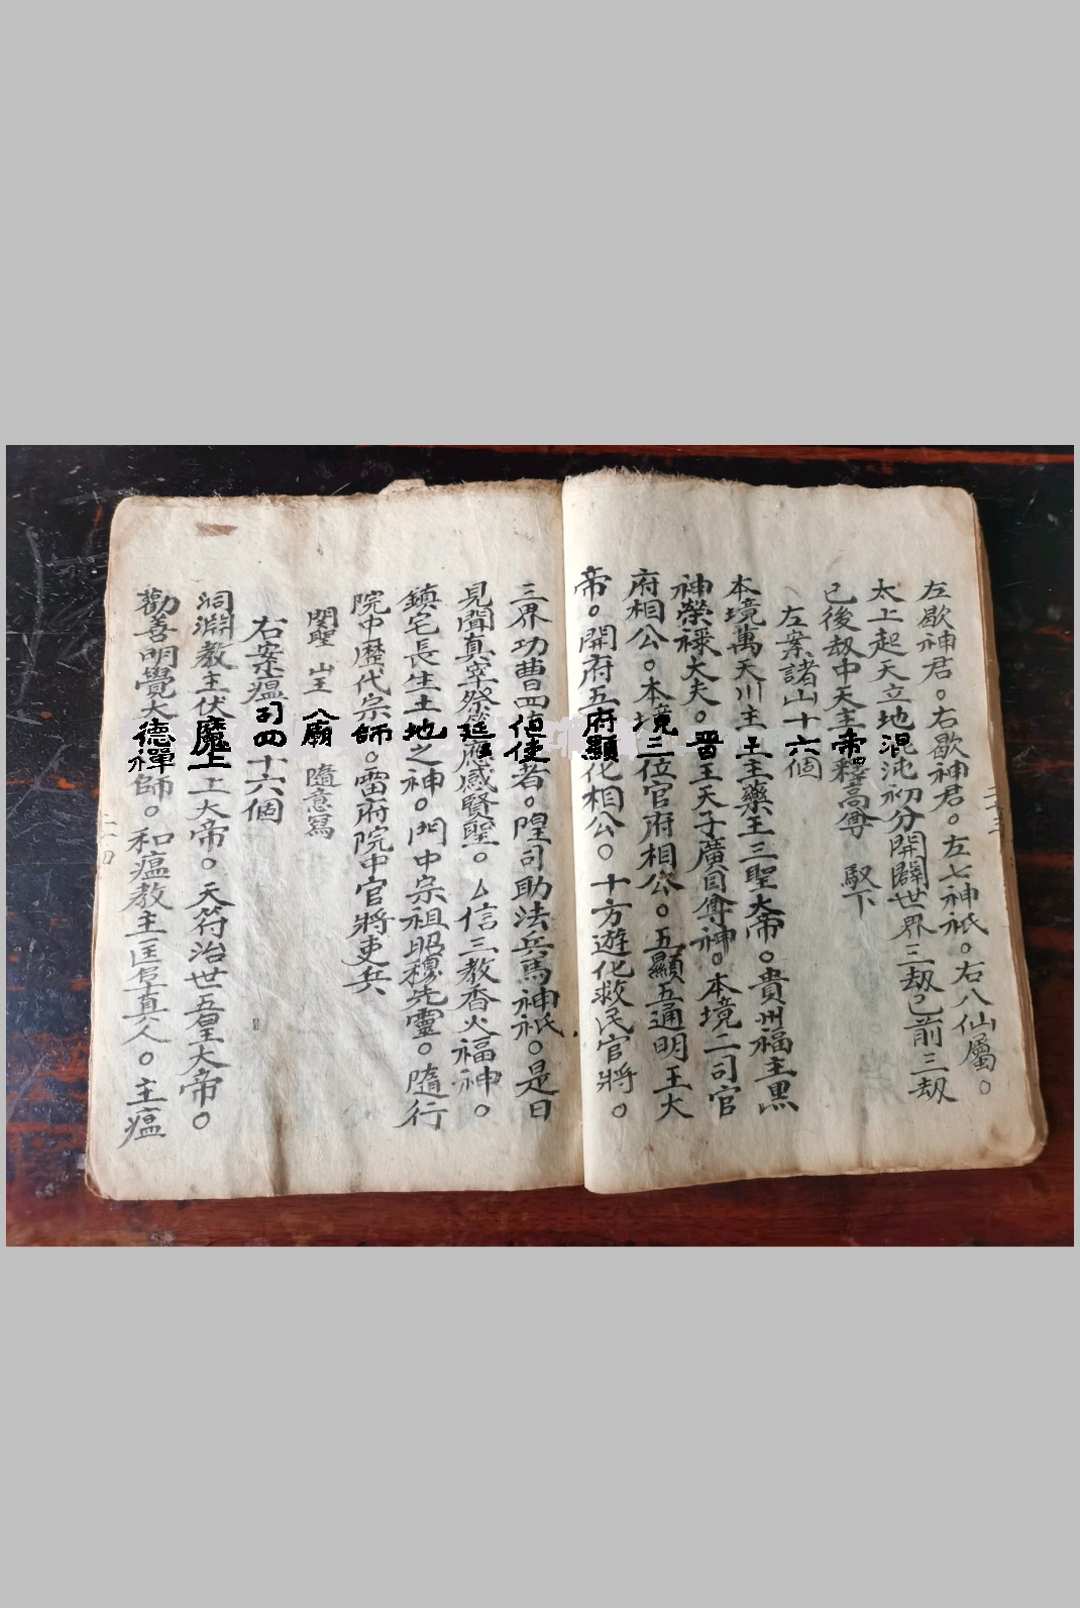 左歇神君。右歇神君。左七神祇。右八仙屬。
太上起天立地混沌初分開闢世界三刼已前三刼
已後刼中天主帝釋高尊 馭下
左案諸山十六個
本境萬天川主土主藥王三聖大帝。貴州福主黑
神榮祿大夫。晋王天子廣目尊神。本境二司官
府相公。本境三位官府相公。五顯五通明王大
帝。開府五府顯化相公。十方遊化救民官將。
三界功曹四值使者。隍司助法兵馬神祇。是日
見聞真宰祭筵應感賢聖。厶信三教香火福神。
鎮宅長生土地之神。門中宗祖昭穆先靈。隨行
院中歷代宗師。雷府院中官將吏兵
関聖 山王 入廟 隨意寫
右案瘟司四十六個
洞淵教主伏魔上大帝。天符治世五皇大帝。
勸善明覺大德禪師。和瘟教主匡阜真人。主瘟